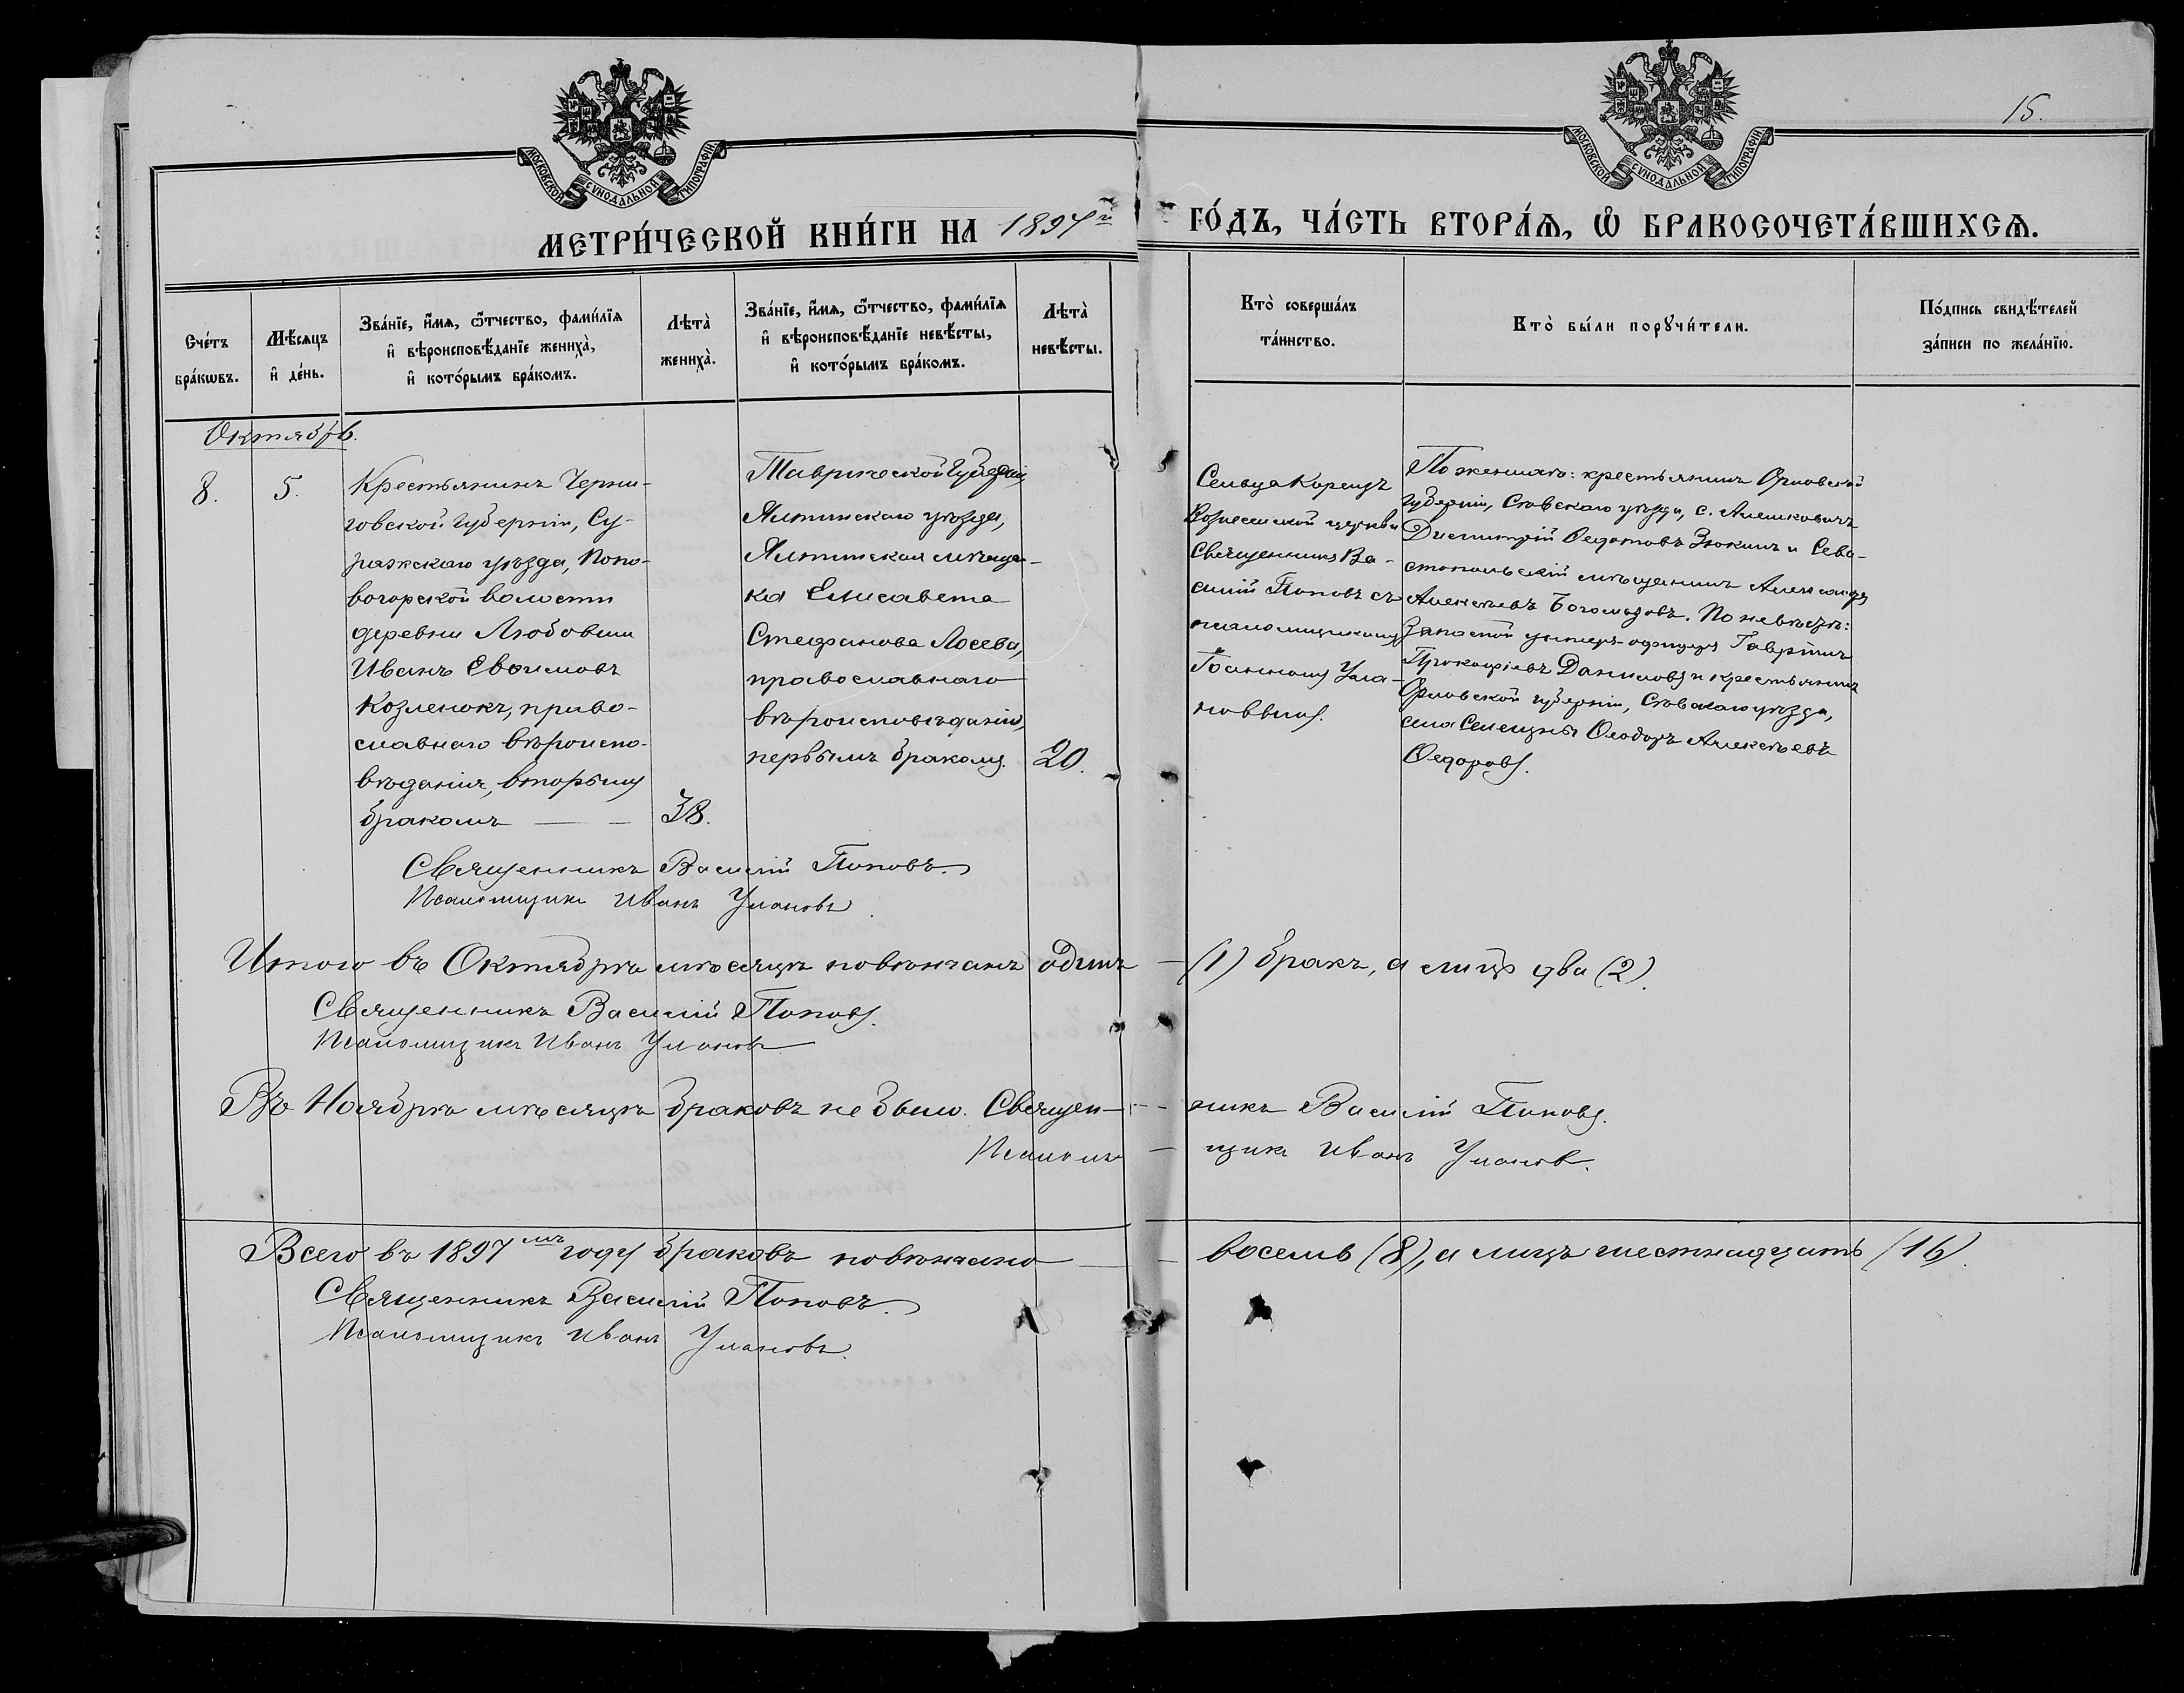 МОСКОВСКОЙ СѴНОДАЛЬНОЙ ТИПОГРАФІИ
МОСКОВСКОЙ СѴНОДАЛЬНОЙ ТИПОГРАФІИ
15.
МЕТРИ́ЧЕСКОЙ КНИ́ГИ НА 1897й ГО́ДЪ, ЧА́СТЬ ВТОРА́Ѧ, Ѽ БРАКОСОЧЕТА́ВШИХСѦ.
Сче́тъ
бра́кѡвъ.
Мѣ́сяцъ
и҆ де́нь.
Зва́нїе, и҆́мѧ, ѻ҆́тчество, фами́лїѧ
и҆ вѣроисповѣ́данїе жениха̀,
и҆ кото́рымъ бра́комъ.
Лѣта̀
жениха̀.
Зва́нїе, и҆́мѧ, ѻ҆́тчество, фами́лїѧ
и҆ вѣроисповѣ́данїе невѣ́сты,
и҆ кото́рымъ бра́комъ.
Лѣта̀
невѣ́сты.
Кто̀ соверша́лъ
та́инство.
Кто̀ бы́ли порꙋчи́тели.
По́дпись свидѣ́телей
за́писи по жела́нїю.
Октябрь.
8.
5.
Крестьянинъ Черни-
говской Губерніи, Су-
ражскаго уѣзда, Попо-
вогорской волости
деревни Любовши
Иванъ Евѳимовъ
Козленокъ, право-
славнаго вѣроиспо-
вѣданія, вторымъ
бракомъ
38.
Таврической Губерніи,
Ялтинскаго уѣзда,
Ялтинская мѣщан-
ка Елисавета
Стефанова Лосева,
православнаго
вѣроисповѣданія,
первымъ бракомъ.
20.
Сельца Кореизъ
Вознесенской церкви
Священникъ Ва-
силій Поповъ съ
псаломщикомъ
Іоанномъ Ула-
новымъ.
По женихѣ: крестьянинъ Орловской
губерніи, Сѣвскаго уѣзда, с. Алешковичъ
Димитрій Ѳедотовъ Зюкинъ и Сева-
стопольскій мѣщанинъ Александръ
Алексѣевъ Богомазовъ. По невѣстѣ:
Запасной унтеръ-офицеръ Гавріилъ
Прокофіевъ Даниловъ и крестьянинъ
Орловской губерніи, Сѣвскаго уѣзда,
села Селецкъ Ѳеодоръ Алексѣевъ
Ѳедоровъ.
Священникъ Василій Поповъ.
Псаломщикъ Иванъ Улановъ.
Итого въ Октябрѣ мѣсяцѣ повѣнчанъ одинъ — (1) бракъ, а лицъ два (2).
Священникъ Василій Поповъ.
Псаломщикъ Иванъ Улановъ
Въ Ноябрѣ мѣсяцѣ браковъ не было. Священ- никъ Василій Поповъ.
Псаломщикъ Иванъ Улановъ.
Всего въ 1897мъ году браковъ повѣнчано — восемь (8), а лицъ шестнадцать (16).
Священникъ Василій Поповъ.
Псаломщикъ Иванъ Улановъ.